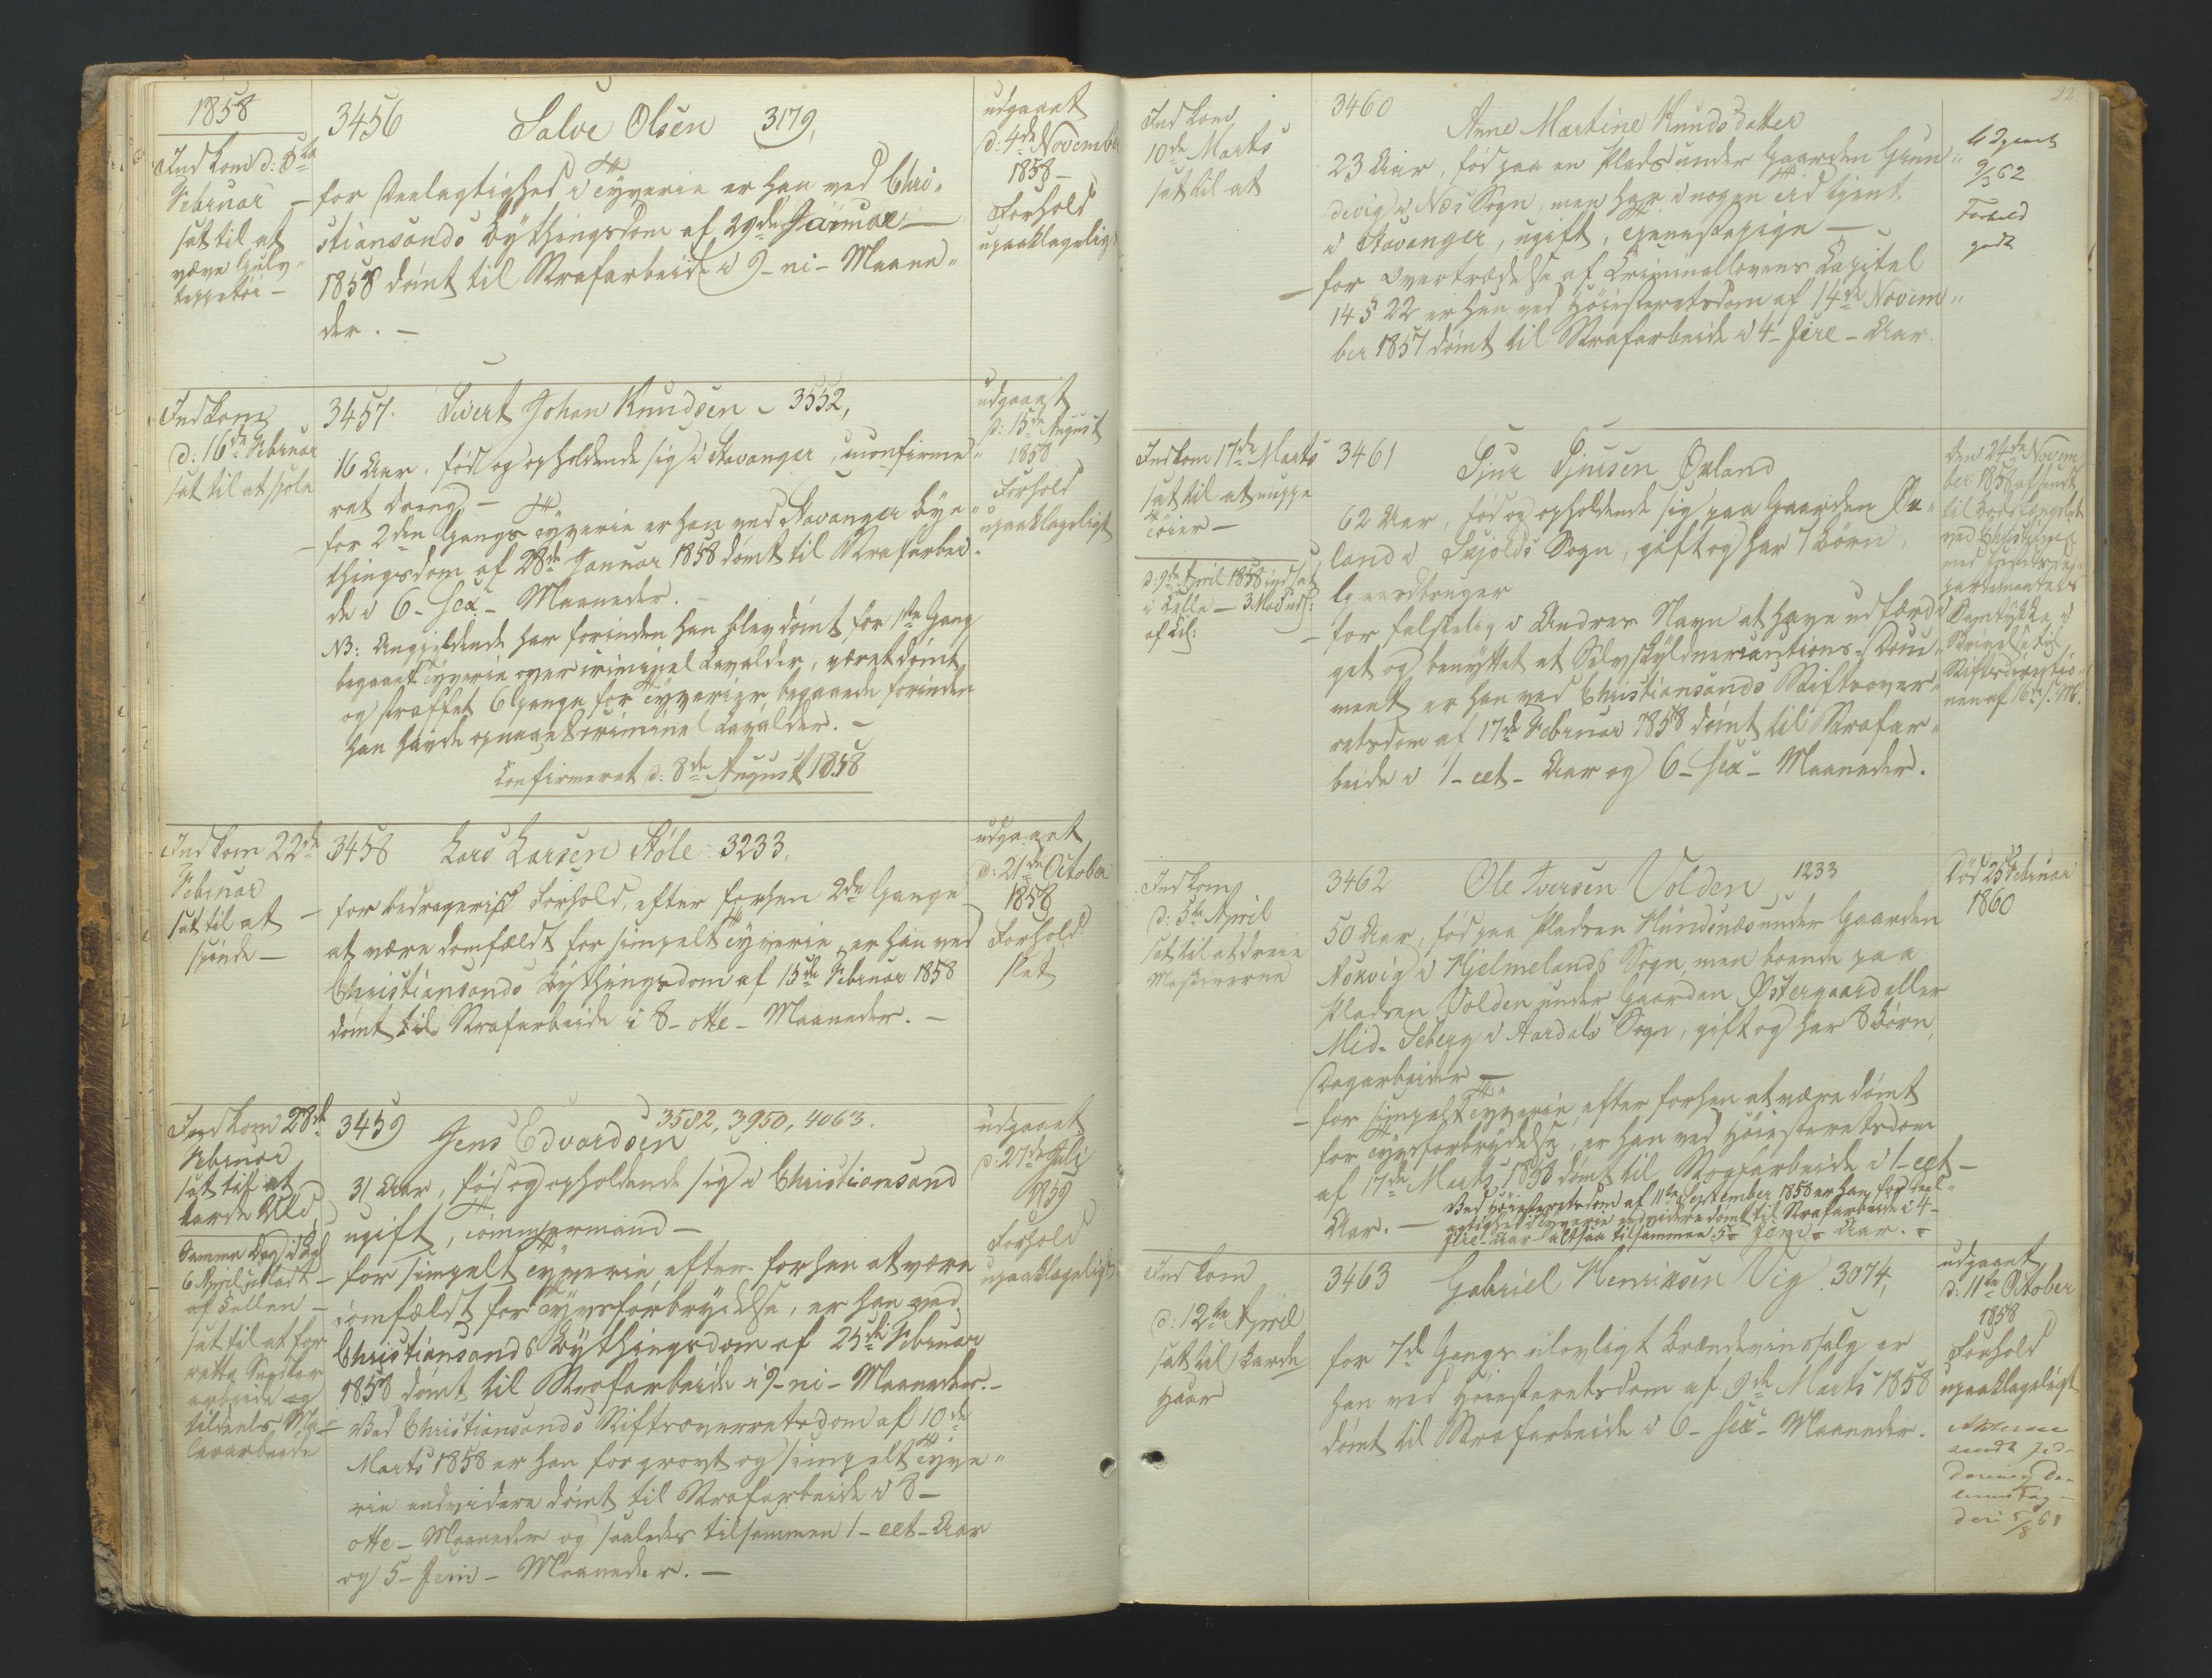 1858
Indkom d: 8de
Februar
sat til at
væve Gulv-
teppetøi -
3456 Salve Olsen 3179,
for Deelagtighed i Tyverie er han ved Chri-
stiansands Bythingsdom af 29de Januar
1858 dømt til Strafarbeide i 9 - ni - Maane-
der. -
udgaaet
d: 4de November
1858 -
Forhold
upaaklageligt
Indkom
d: 16de Februar
sat til at spole
3457. Sivert Johan Knudsen - 3552,
16 Aar, født og opholdende sig i Stavanger, uconfirme-
ret Dreng, -
for 2den Gangs Tyverie er han ved Stavanger Bye-
thingsdom af 28de Januar 1858 dømt til Strafarbei-
de i 6 - sex - Maaneder. -
NB: Angjeldende har forinden han blev dømt for 1ste Gang
begaaet Tyverie over criminel Lavalder, været dømt
og straffet 6 Gange for Tyverier, begaaede forinden
han havde opnaaet criminel Lavalder. -
Confirmeret d: 8de August 1858
udgaaet
d: 15de August
1858
Forhold
upaaklageligt
Indkom 22de
Februar
sat til at
spinde -
3458 Lars Larsen Støle 3233,
for bedragerisk Forhold, efter forhen 2de Gange
at være domfældt for simpelt Tyverie, er han ved
Christiansands Bythingsdom af 15de Februar 1858
dømt til Strafarbeide i 8 - otte - Maaneder. -
udgaaet
d: 21de October
1858
Forhold
slet
Indkom 28de
Februar
sat til at
karde Uld
Samme Dag i Cel
6 April
af Cellen -
sat til at for
rette
arbeide og
tildeels Ma-
lerarbeide
3459 Jens Edvardsen 3582, 3950, 4063.
31 Aar, født og opholdende sig i Christiansand
ugift, Tømmermand -
for simpelt Tyverie efter forhen at være
domfældt for Tyvsforbrydelse, er han ved
Christiansands Bythingsdom af 25de Februar
1858 dømt til Strafarbeide i 9 - ni - Maaneder. -
Ved Christiansands Stiftsoverretsdom af 10de
Marts 1858 er han for grovt og simpelt Tyve-
rie endvidere dømt til Strafarbeide i 8 -
otte - Maaneder og saaledes tilsammen 1 - eet - Aar
og 5 - fem - Maaneder. -
udgaaet
d: 27de Juli
1859
Forhold
upaaklageligt
22
Indkom
10de Marts
sat til at
3460
Anne Martine Knudsdatter
23 Aar, født paa en Plads under Gaarden Grun-
devig i Næs Sogn, men har i nogen Tid tjent
i Stavanger, ugift, Tjenestepige -
for Overtrædelse af Criminallovens Capitel
14 § 22 er hun ved Høiesteretsdom af 14de Novem-
ber 1857 dømt til Strafarbeide i 4 - fire - Aar.
Udgaaet
9/3 62
Forhold
godt
Indkom 17de Marts
sat til at nuppe
Tøier -
d: 9de April 1858 indsat
i Celle - 3. Mai uds:
af Cel:
3461 Sjur Sjursen Øxland
62 Aar, født og opholdende sig paa Gaarden Øx-
land i Skjolds Sogn, gift og har 7 Børn,
Gaardbruger
for falskelig i Andres Navn at have udfærdi-
get og benyttet et Selvskyldnercautions-Docu-
ment er han ved Christiansands Stiftsover-
retsdom af 17de Februar 1858 dømt til Strafar-
beide i 1 - eet - Aar og 6 - sex - Maaneder.
den 24de Novem
ber 1858 afsendt
til Bodsfængslet
ved Christiania
med Justitsde-
partementets
Samtykke i
Skrivelse til
Stiftsdirectio-
nen af 16de s. M.
Indkom
d: 5te April
sat til at dreie
Maskinerne
3462 Ole Iversen Volden 1233
50 Aar, født paa Pladsen Hundsnæs under Gaarden
Askvig i Hjelmelands Sogn, men boende paa
Pladsen Volden under Gaarden Østergaard eller
Mid-Seberg i Aardals Sogn, gift og har 8 Børn,
Dagarbeider -
for simpelt Tyverie, efter forhen at være dømt
for Tyvsforbrydelse, er han ved Høiesteretsdom
af 17de Marts 1858 dømt til Strafarbeide i 1 - eet -
Aar. - Ved Høiesteretsdom af 11te September 1858 er han for Deel-
agtighed i Tyverie endvidere dømt til Strafarbeide i 4 -
fire - Aar altsaa tilsammen 5 - fem - Aar. -
Død 25 Februar
1860
Indkom
d: 12te April
sat til karde
Haar
3463 Gabriel Henriksen Vig. 3074,
for 7de Gangs ulovligt Brændevinssalg er
han ved Høiesteretsdom af 9de Marts 1858
dømt til Strafarbeide i 6 - sex - Maaneder.
udgaaet
d: 11te October
1858
Forhold
upaaklageligt
5/8 61